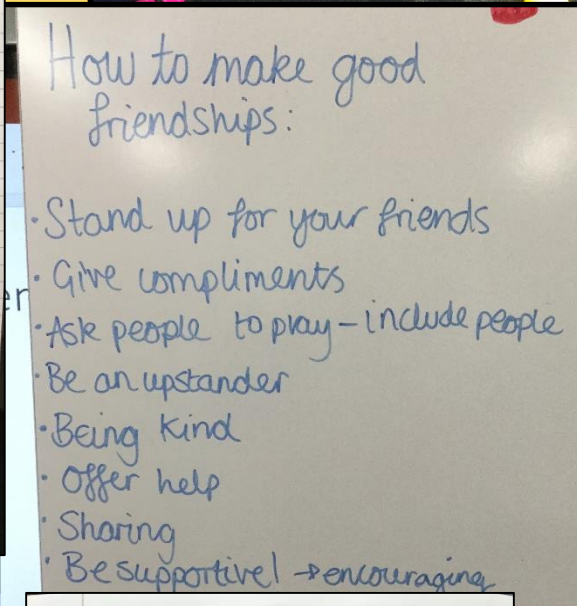 How to make good
friendships:
· Stand up for your friends
· Give compliments
· Ask people to play - include people
· Be an upstander
· Being kind
· Offer help
· Sharing
· Be supportive / → encouraging
er